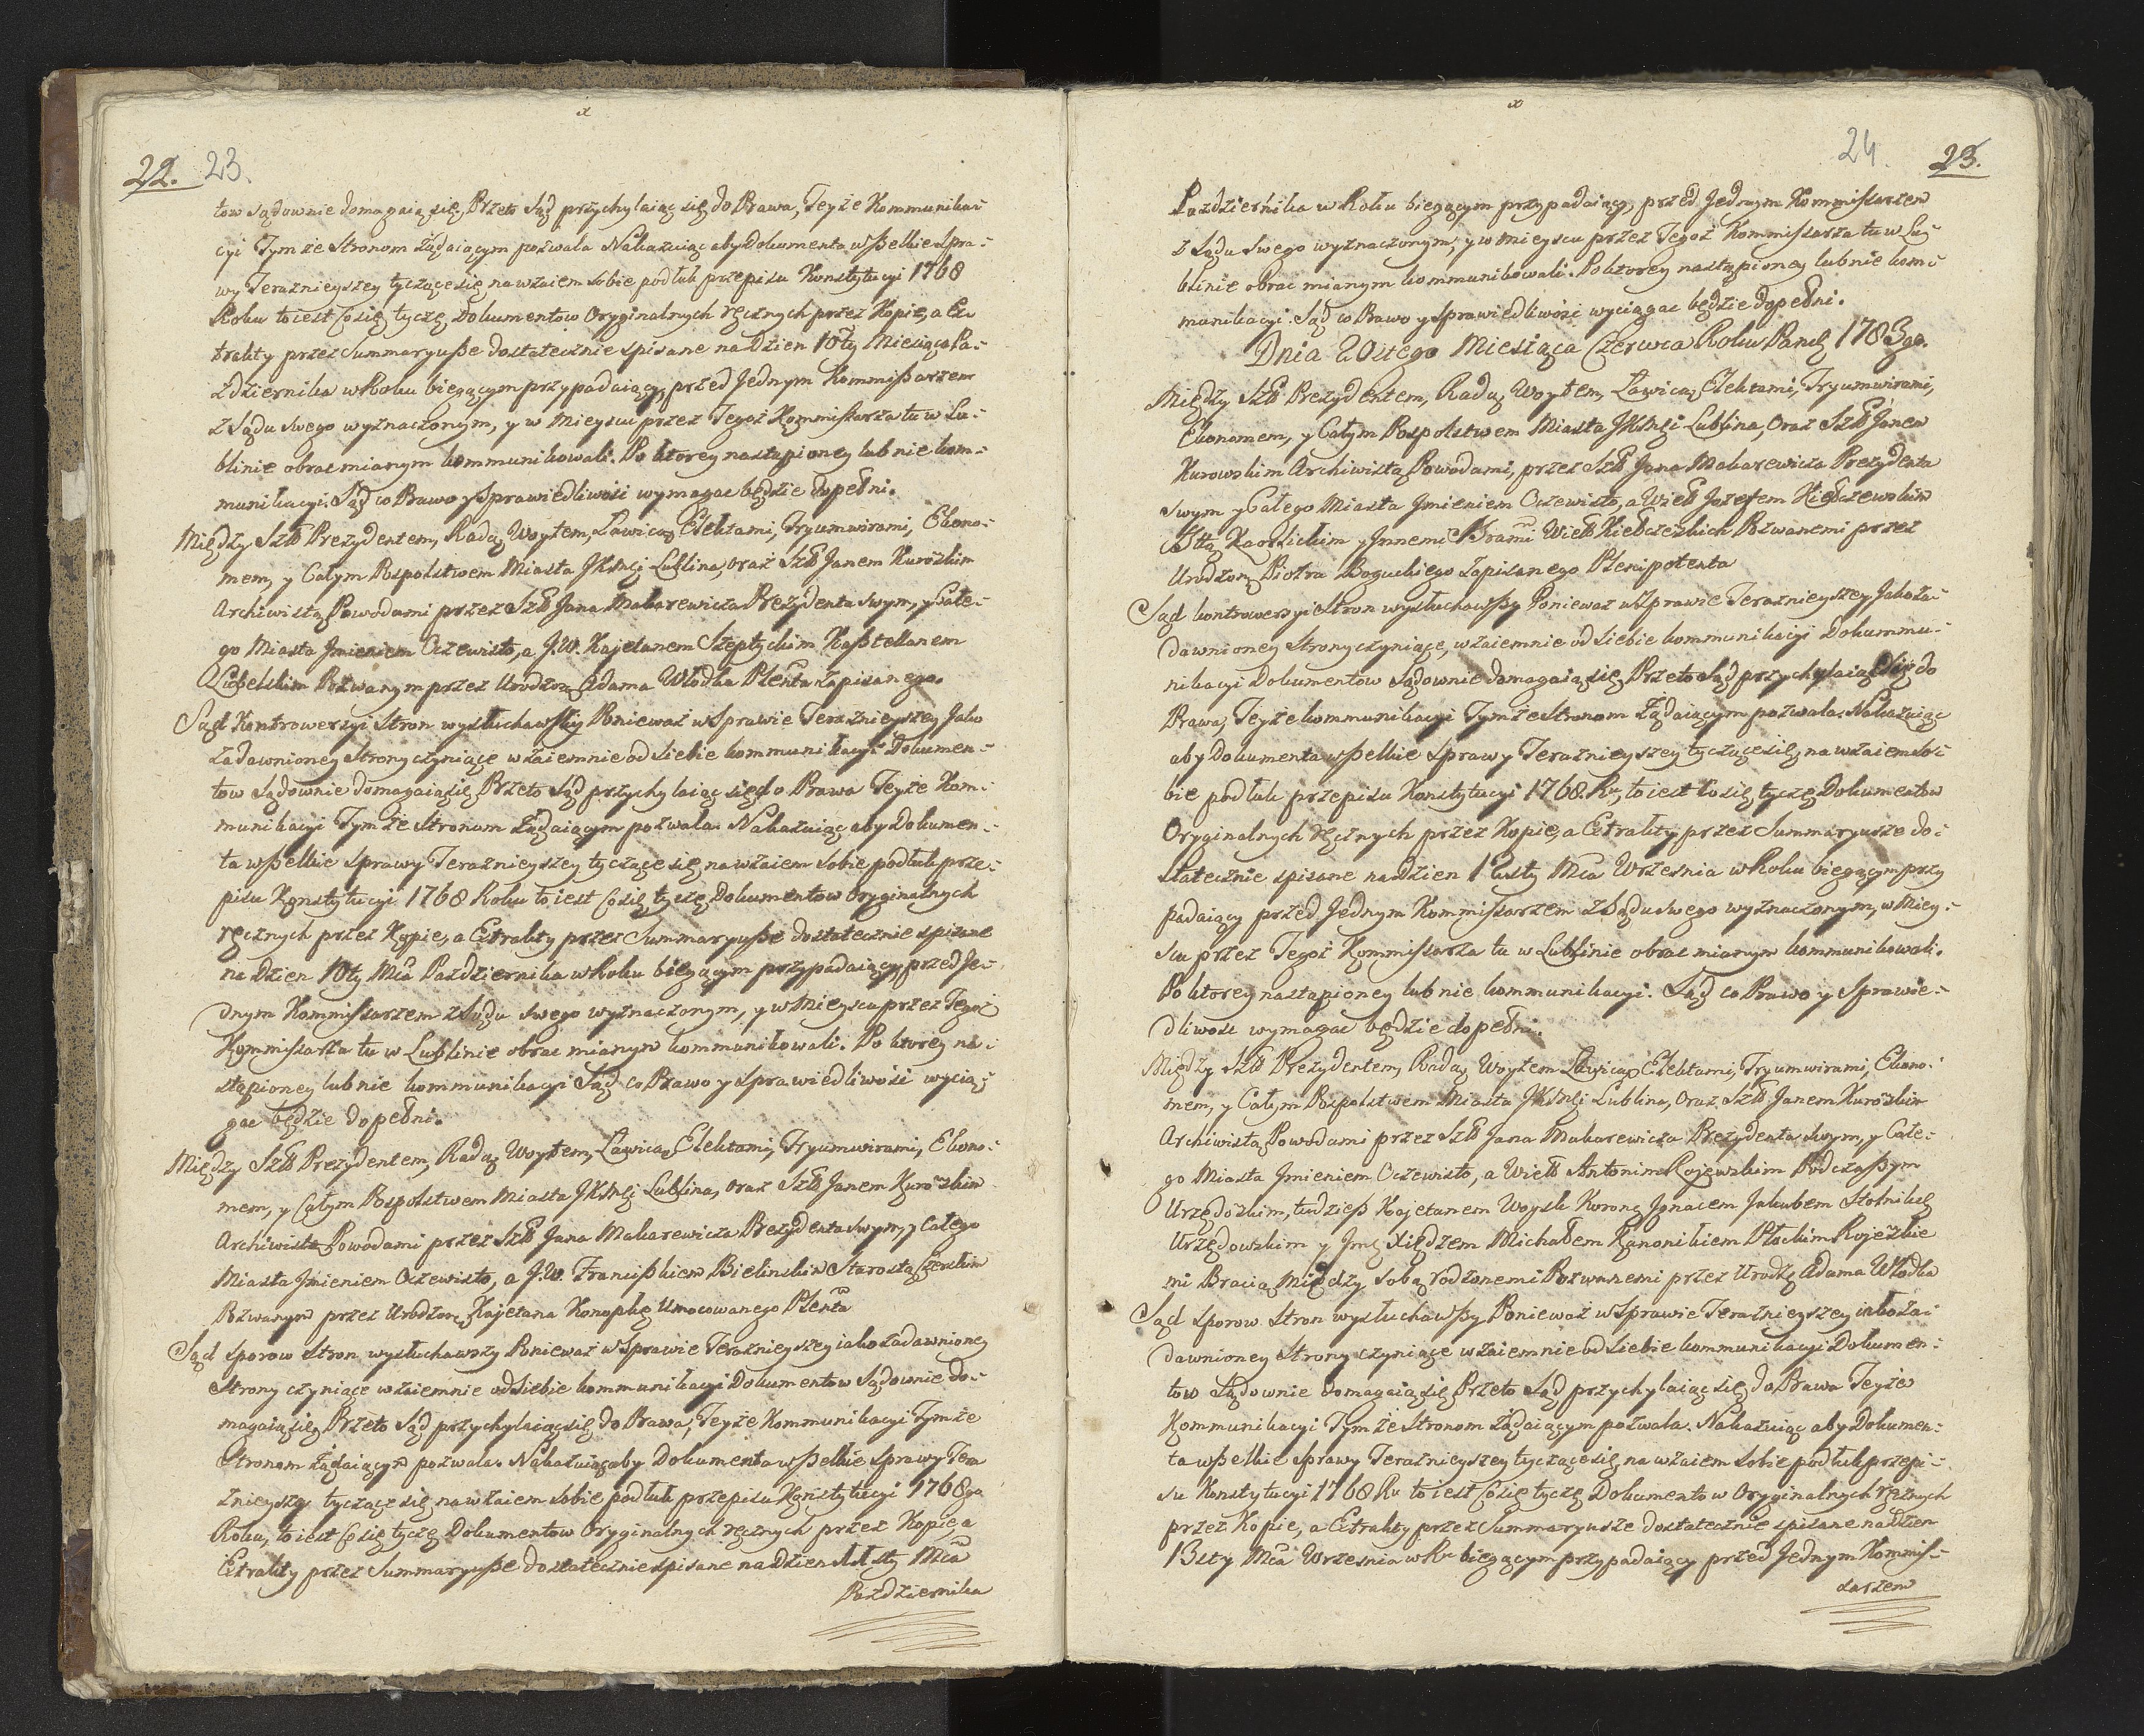 x
22. 23.
tow sądownie domagaią się, Przeto Sąd przychylaiąc się do Prawa, Teyże Kommunika-
cyi Tymże Stronom Żądaiącym pozwala Nakazuiąc aby Dokumenta wszelkie Spra-
wy Teraznieyszey tyczące się nawzaiem sobie podług przepisu Konstytucyi 1768
Roku to iest co się tycze Dokumentow Oryginalnych ręcznych przez Kopie, a Ex-
trakty przez Summaryusze dostatecznie spisane na Dzien 10ty Miesiąca Pa-
zdziernika w Roku bieżącym przypadaiący, przed Jednym Kommissarzem
z Sądu swego wyznaczonym, y w Mieyscu przez Tegoż Kommissarza tu w Lu-
blinie obrac mianym kommunikowali. Po ktorey nastąpioney lub nie kom-
munikacyi. Sąd co Prawo y Sprawiedliwośi wymagac będzie dopełni.
Między Szł Prezydentem, Radą, Woytem, Ławicą, Elektami, Tryumwirami, Ekono-
mem, y Całym Pospolstwem Miasta JKMci Lublina, oraz Szł Janem Kurowskim
Archiwistą Powodami przez Szł Jana Makarewicza Prezydenta swym, y Całe-
go Miasta Jmieniem Oczewisto, a J.W. Kajetanem Szeptyckim Kasztellanem
Lubelskim Pozwanym przez Urodzon Adama Włodka Plenta zapisanego.
Sąd Kontrowersyi Stron wysłuchawszy Ponieważ w Sprawie Teraznieyszey Jako
zadawnioney Strony czyniące wzaiemnie od siebie kommunikacyi Dokumen-
tow Sądownie domagaią się Przeto Sąd przychylaiąc się do Prawa Teyże Kom-
munikacyi Tymże Stronom Żądaiącym pozwala. Nakazuiąc aby Dokumen-
ta wszelkie sprawy Teraznieyszey tyczące się nawzaiem sobie podług prze-
pisu Konstytucyi 1768 Roku to iest co się tycze Dokumentow Oryginalnych
ręcznych przez Kopie, a Extrakty przez Summaryusze dostatecznie spisane
na Dzien 10ty Mca Pazdziernika w Roku bieżącym przypadaiący przed Je-
dnym Kommissarzem z Sądu swego wyznaczonym, y w Mieyscu przez Tegoż
Kommissarza tu w Lublinie obrac mianym kommunikowali. Po ktorey na-
stąpioney lub nie kommunikacyi Sąd co Prawo y sprawiedliwośi wycią-
gac będzie dopełni.
Między Szł Prezydentem, Radą, Woytem, Ławicą, Elektami, Tryumwirami, Ekono-
mem, y Całym Pospolstwem Miasta JKMci Lublina, oraz Szł Janem Kurowskim
Archiwistą Powodami przez Szł Jana Makarewicza Prezydenta swym, y Całego
Miasta Jmieniem Oczewisto, a J.W. Franciszkiem Bielinskim Starostą Czerskim
Pozwanym przez Urodzon Kajetana Konopkę Umocowanego Plenta
Sąd sporow Stron wysłuchawszy Ponieważ w Sprawie Teraznieyszey iako zadawnioney
Strony czyniące wzaiemnie od siebie kommunikacyi Dokumentow Sądownie do-
magaią się Przeto Sąd przychylaiąc się do Prawa, Teyże Kommunikacyi Tymże
Stronom Żądaiącym pozwala. Nakazuiąc aby Dokumenta wszelkie Sprawy Tera
znieyszey tyczące się nawzaiem sobie podług przepisu Konstytucyi 1768go
Roku, to iest co się tycze Dokumentow Oryginalnych ręcznych przez Kopie a
Extrakty przez Summaryusze dostatecznie spisane na dzien 11sty Mca
Pazdziernika
x
24. 23.
Pazdziernika w Roku bieżącym przypadaiący, przed Jednym Kommissarzem
z Sądu swego wyznaczonym, y w mieyscu przez Tegoż Kommissarza tu w Lu-
blinie obrac mianym kommunikowali. Po ktorey nastąpioney lub nie kom-
munikacyi. Sąd co Prawo y sprawiedliwośi wyciągac będzie dopełni.
Dnia 20stego Miesiąca Czerwca Roku Pansk 1783go.
Między Szł Prezydentem, Radą, Woytem, Ławicą, Elektami, Tryumwirami,
Ekonomem, y Całym Pospolstwem Miasta JKMci Lublina, Oraz Szł Janem
Kurowskim Archiwistą Powodami, przez Szł Jana Makarewicza Prezydenta
swym y Całego Miasta Jmieniem Oczewisto, a Wiel Jozefem Kiełczewskim
Karsźickim y Jnnemi Wiel Kiełczewskich Pozwanemi przez
Urodzon Piotra Boguckiego zapisanego Plenipotenta
Sąd kontrowersyi Stron wysłuchawszy Ponieważ w Sprawie Teraznieyszey Jako za-
dawnioney Strony czyniące, wzaiemnie od siebie kommunikacyi Dokummu-
nikacyi Dokumentow Sądownie domagaią się Przeto Sąd przychylaiąc się do
Prawa, Teyże kommunikacyi Tymże Stronom Żądaiącym pozwala. Nakazuiąc
aby Dokumenta wszelkie Sprawy Teraznieyszey tyczące się nawzaiem So-
bie podług przepisu Konstytucyi 1768. Ru, to iest co się tycze Dokumentow
Oryginalnych ręcznych przez Kopie, a Extrakty przez Summaryusze do-
statecznie spisane na dzien 12sty Mca Wrzesnia w Roku bieżącym przy
padaiący przed Jednym Kommissarzem z Sądu swego wyznaczonym, w Miey-
scu przez Tegoż Kommissarza tu w Lublinie obrac mianym kommunikowali.
Po ktorey nastąpioney lub nie kommunikacyi. Sąd co Prawo y Sprawie-
dliwość wymagac będzie dopełni.
Między Szł Prezydentem, Radą, Woytem Ławicą, Elektami, Tryumwirami, Ekono-
mem, y Całym Pospolstwem Miasta JKMci Lublina, Oraz Szł Janem Kurowskim
Archiwistą Powodami przez Szł Jana Makarewicza Prezydenta swym, y Całe-
go Miasta Jmieniem Oczewisto, a Wiel Antonim Rojewskim Podczaszym
Urzędowskim, tudziesz Kajetanem Woysk Koronę Jgnacem Jakubem Stolnikę
Urzędowskim y Jmę Xiędzem Michałem Kanonikiem Płockim Rojewskie
mi Bracią Między sobą rodzonemi Pozwanemi przez Urodz Adama Włodka
Sąd sporow Stron wysłuchawszy Ponieważ w Sprawie Teraznieyszey iako za-
dawnioney Strony czyniące wzaiemnie od siebie kommunikacyi Dokumen-
tow Sądownie domagaią się Przeto Sąd przychylaiąc się do Prawa Teyże
Kommunikacyi Tymże Stronom żądaiącym pozwala. Nakazuiąc aby Dokumen-
ta wszelkie sprawy Teraznieyszey tyczące się nawzaiem sobie podług przepi-
su Konstytucyi 1768 Ru to iest co się tycze Dokumentow Oryginalnych ręcznych
przez Kopie, a Extrakty przez Summaryusze dostatecznie spisane na Dzien
13sty Mca Wrzesnia w Ru bieżącym przypadaiący przed Jednym Kommis-
sarzem